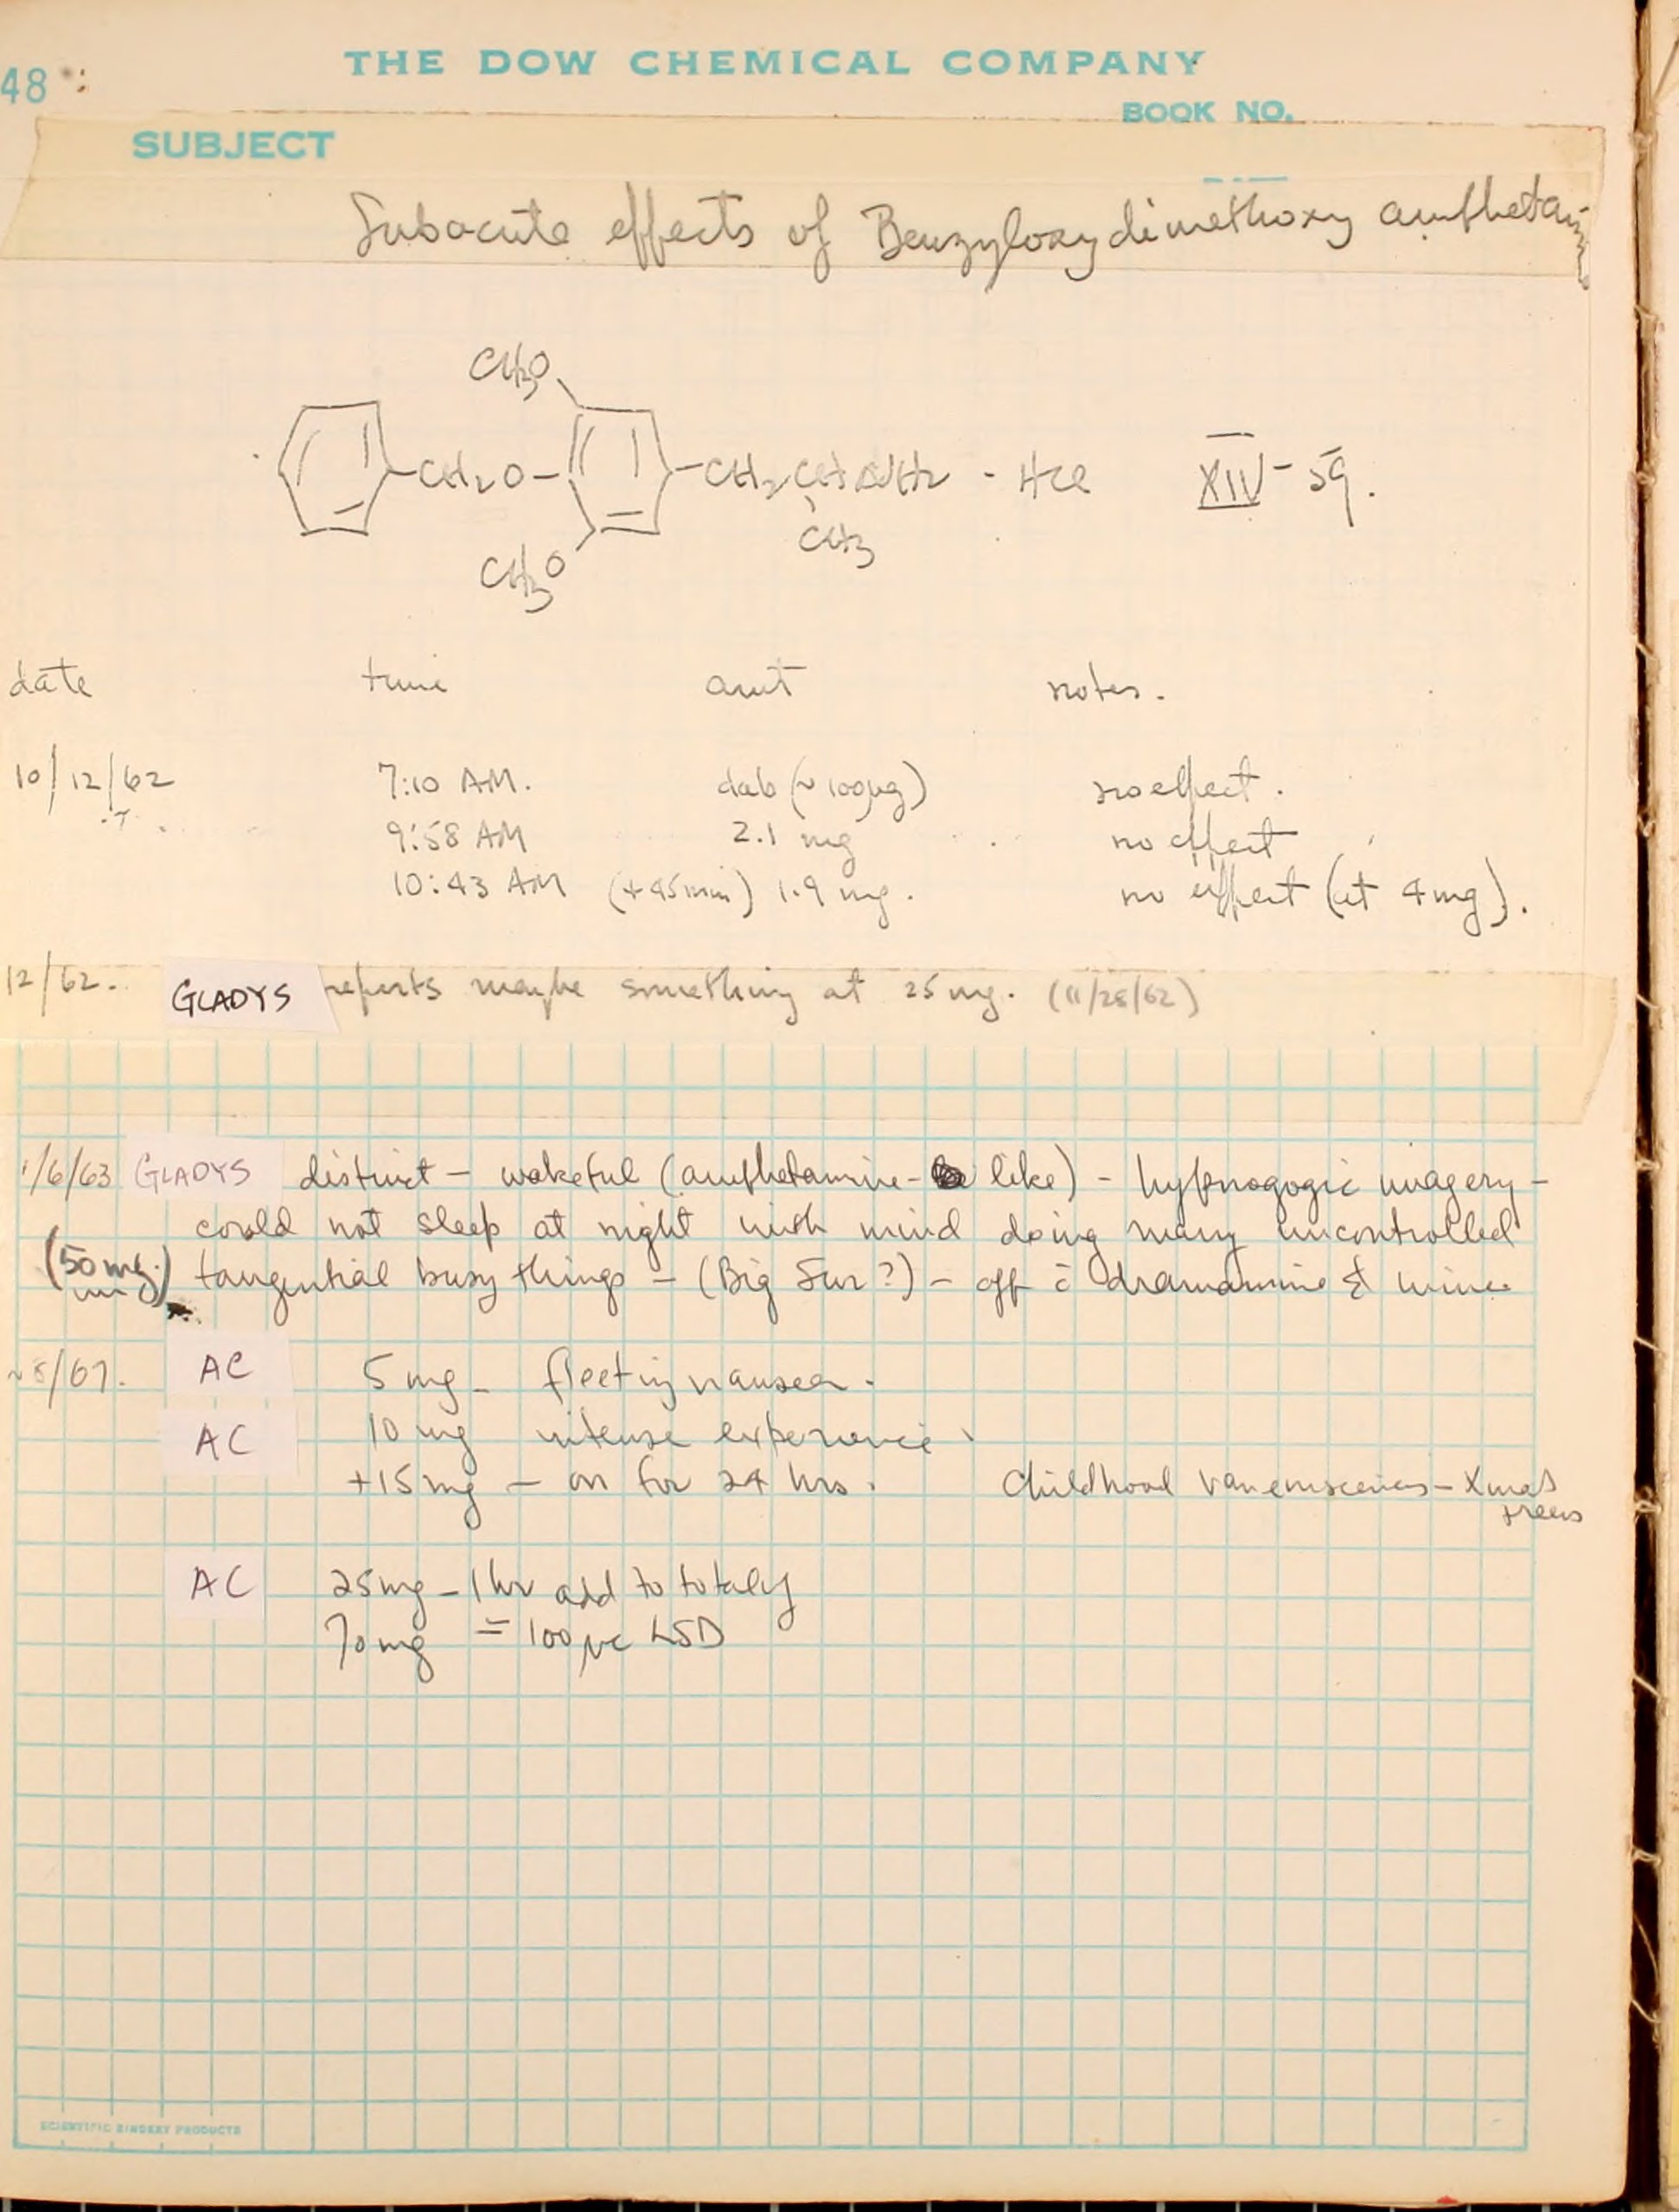 48
THE DOW CHEMICAL COMPANY
BOOK NO.
SUBJECT
Subacute effects of Benzyloxydimethoxy amphetamine
CH3O
CH2O
CH2CHNH2 - HCl XIV-59.
CH3
CH3O
date time amt notes.
10/12/62 7:10 AM. dab (~100μg) no effect.
9:58 AM 2.1 mg no effect
10:43 AM (+45min) 1.9 mg. no effect (at 4mg).
12/62. GLADYS reports maybe something at 25 mg. (11/28/62)
1/6/63 GLADYS distinct - wakeful (amphetamine- like) - hypnogogic imagery -
could not sleep at night with mind doing many uncontrolled
(50 mg.) tangential busy things - (Big Sur?) - off c̄ dramamine & wine
~8/67. AC 5 mg - fleeting nausea.
AC 10 mg intense experience
+15mg - on for 24 hrs. Childhood - Xmas
trees
AC 25mg - 1 hr add to totaly
70 mg = 100 LSD
SCIENTIFIC BINDERY PRODUCTS